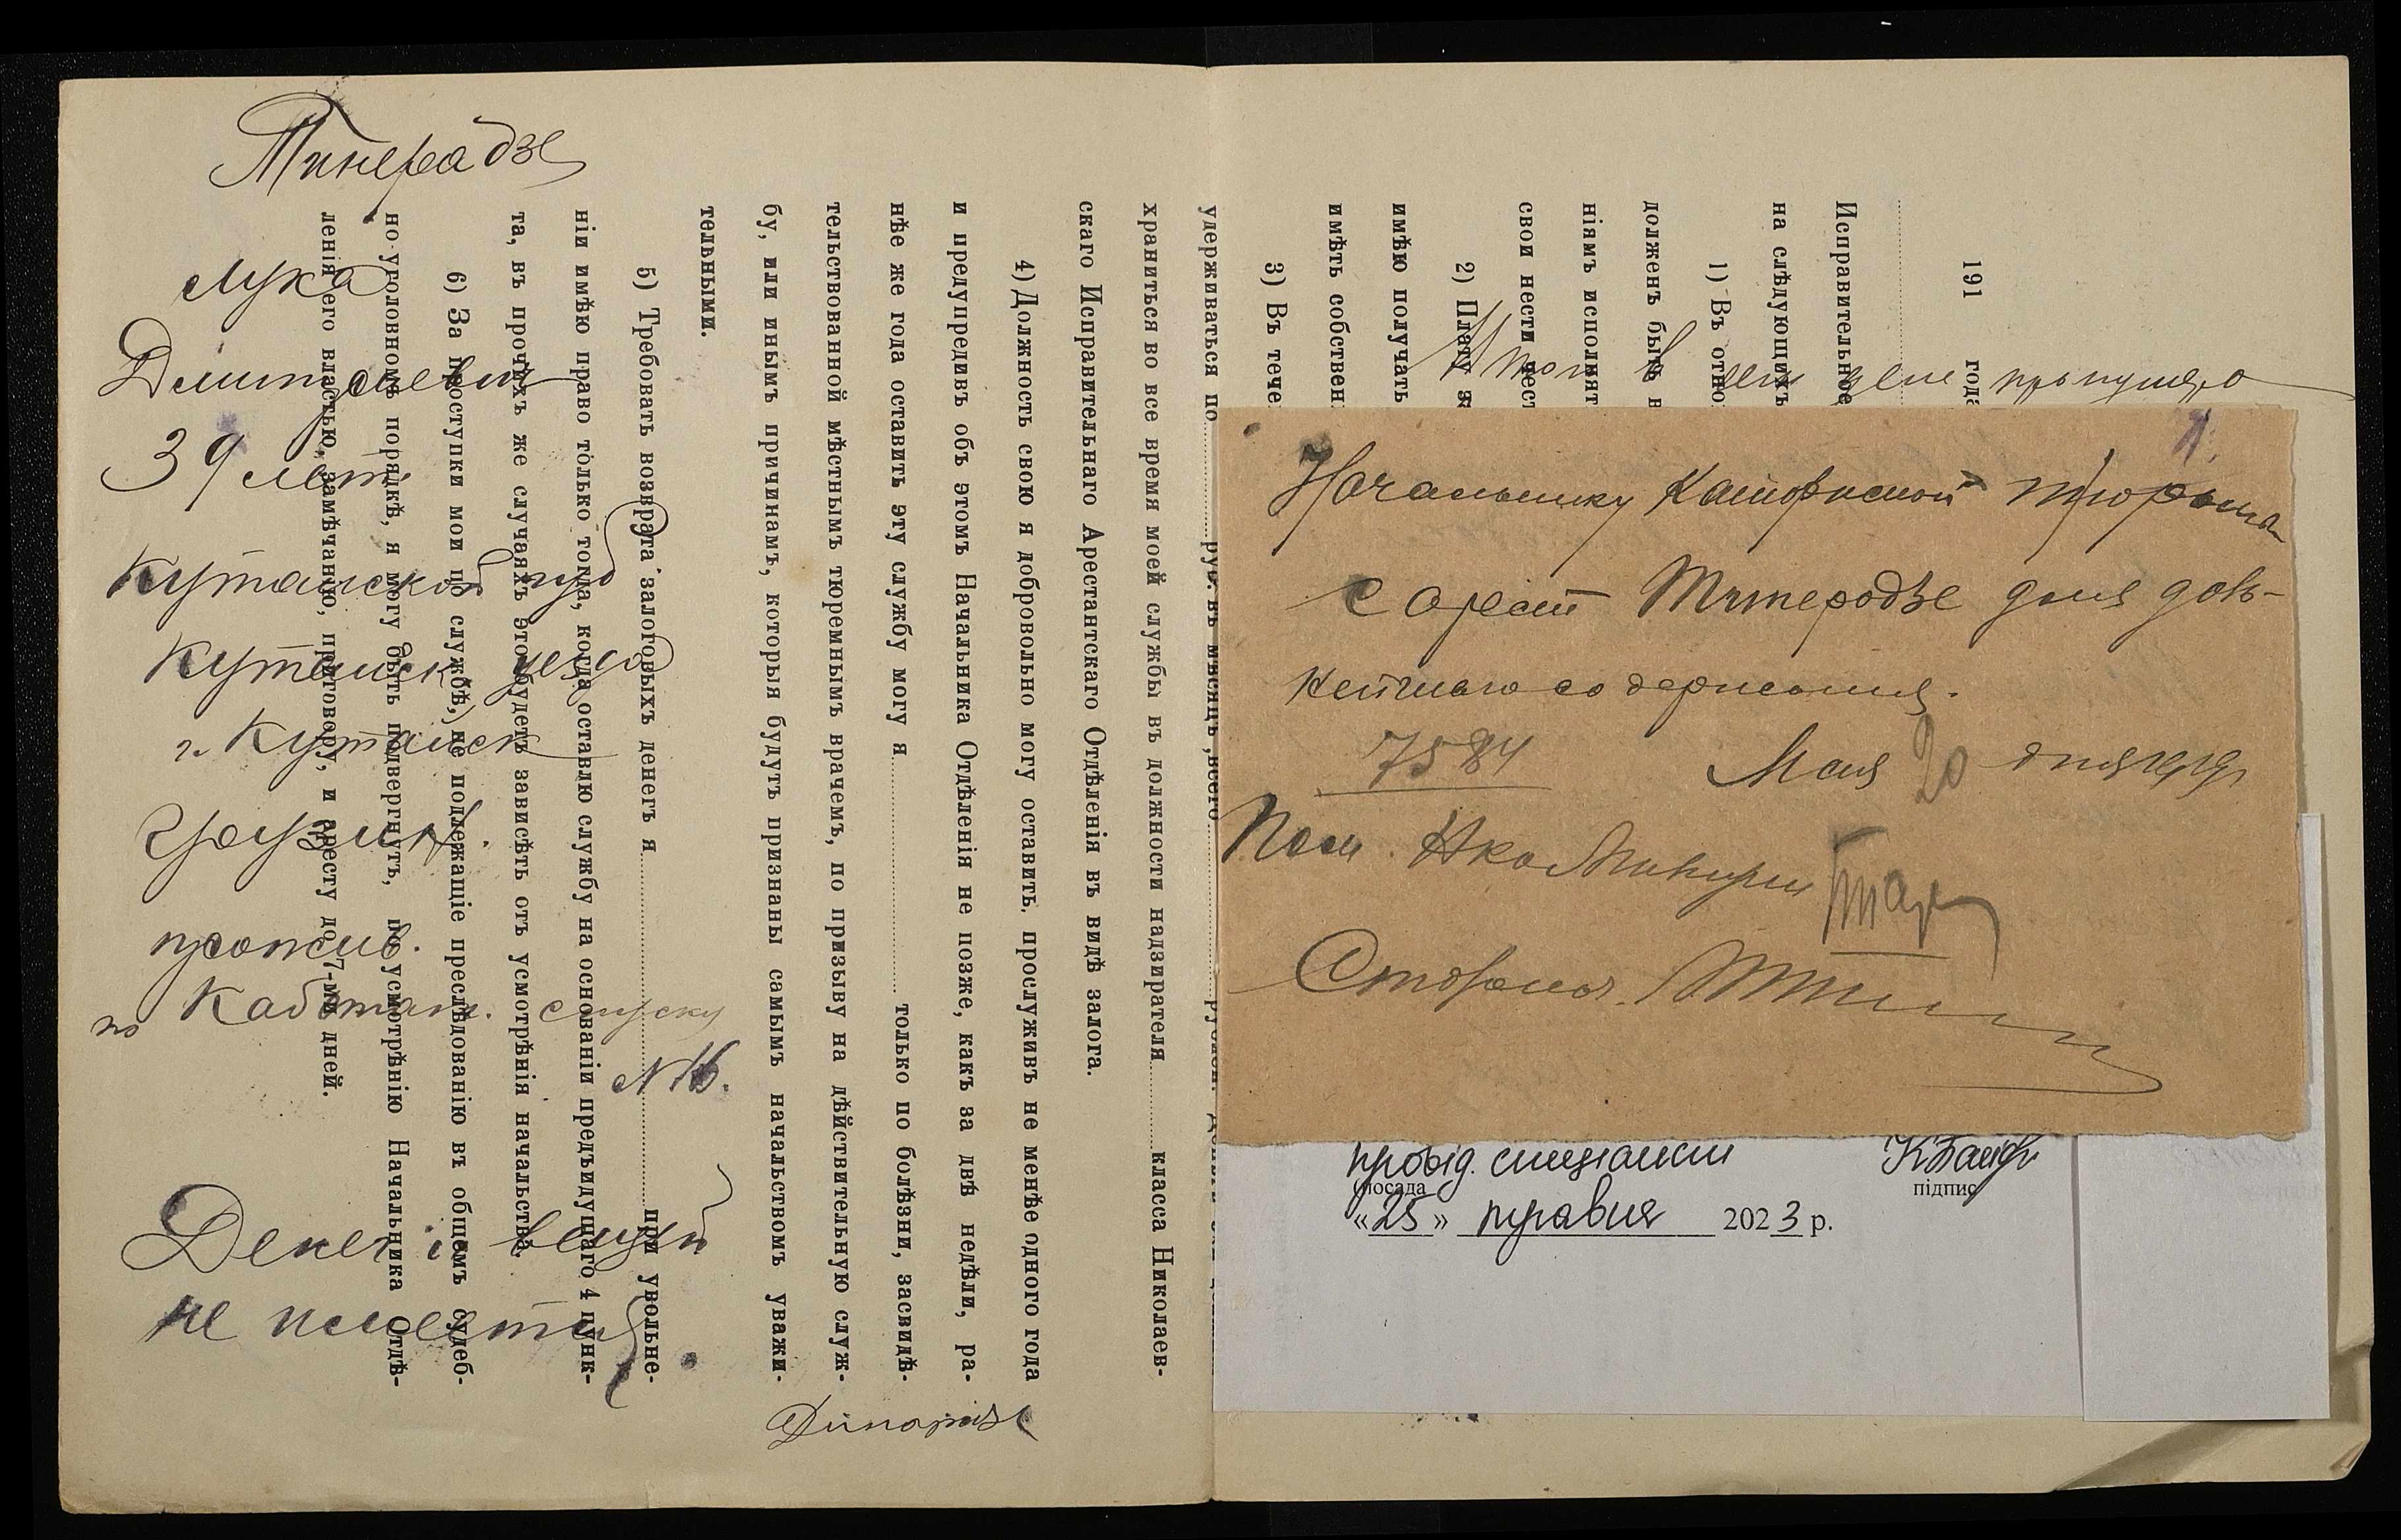 Тинерадзе
Лука
Дмитриевич
39 лет
Кутаиской губ
Кутаиск уезда
г. Кутаиск
Грузин.
прожив.
по Каботаж. спуску
№ 16.
Денег і вещей
не имеется
191 года
Исправительное
на слѣдующихъ
1) Въ отно
долженъ быть в
ніямъ исполнят
свои нести чест
2) Плату за
имѣю получать
имѣть собствен
3) Въ тече
удерживаться по руб. въ мѣсяцъ, всего
храниться во все время моей службы въ должности надзирателя класса Николаев-
скаго Исправительнаго Арестантскаго Отдѣленія въ видѣ залога.
4) Должность свою я добровольно могу оставить, прослуживъ не менѣе одного года
и предупредивъ объ этомъ Начальника Отдѣленія не позже, какъ за двѣ недѣли, ра-
нѣе же года оставить эту службу могу я только по болѣзни, засвидѣ-
тельствованной мѣстнымъ тюремнымъ врачемъ, по призыву на дѣйствительную служ-
бу, или инымъ причинамъ, которыя будутъ признаны самымъ начальствомъ уважи-
тельными.
5) Требовать возврата залоговыхъ денегъ я при увольне-
ніи имѣю право только тогда, когда оставлю службу на основаніи предъидущаго 4 пунк-
та, въ прочихъ же случаяхъ это будетъ зависѣть отъ усмотрѣнія начальства.
6) За проступки мои по службѣ, не подлежащіе преслѣдованію въ общемъ судеб-
но-уголовномъ порядкѣ, я могу быть подвергнутъ, по усмотрѣнію Начальника Отдѣ-
ленія его властью, замѣчанію, приговору, и аресту до 7-ми дней.
Начальнику Каторжной тюрьма
с арест Тинерадзе для даль-
нейшаго содержания.
7584 Мая 20 дня 1919г
Пом.
провід. спеціаліст
посада підпис
«25» травня 2023 р.